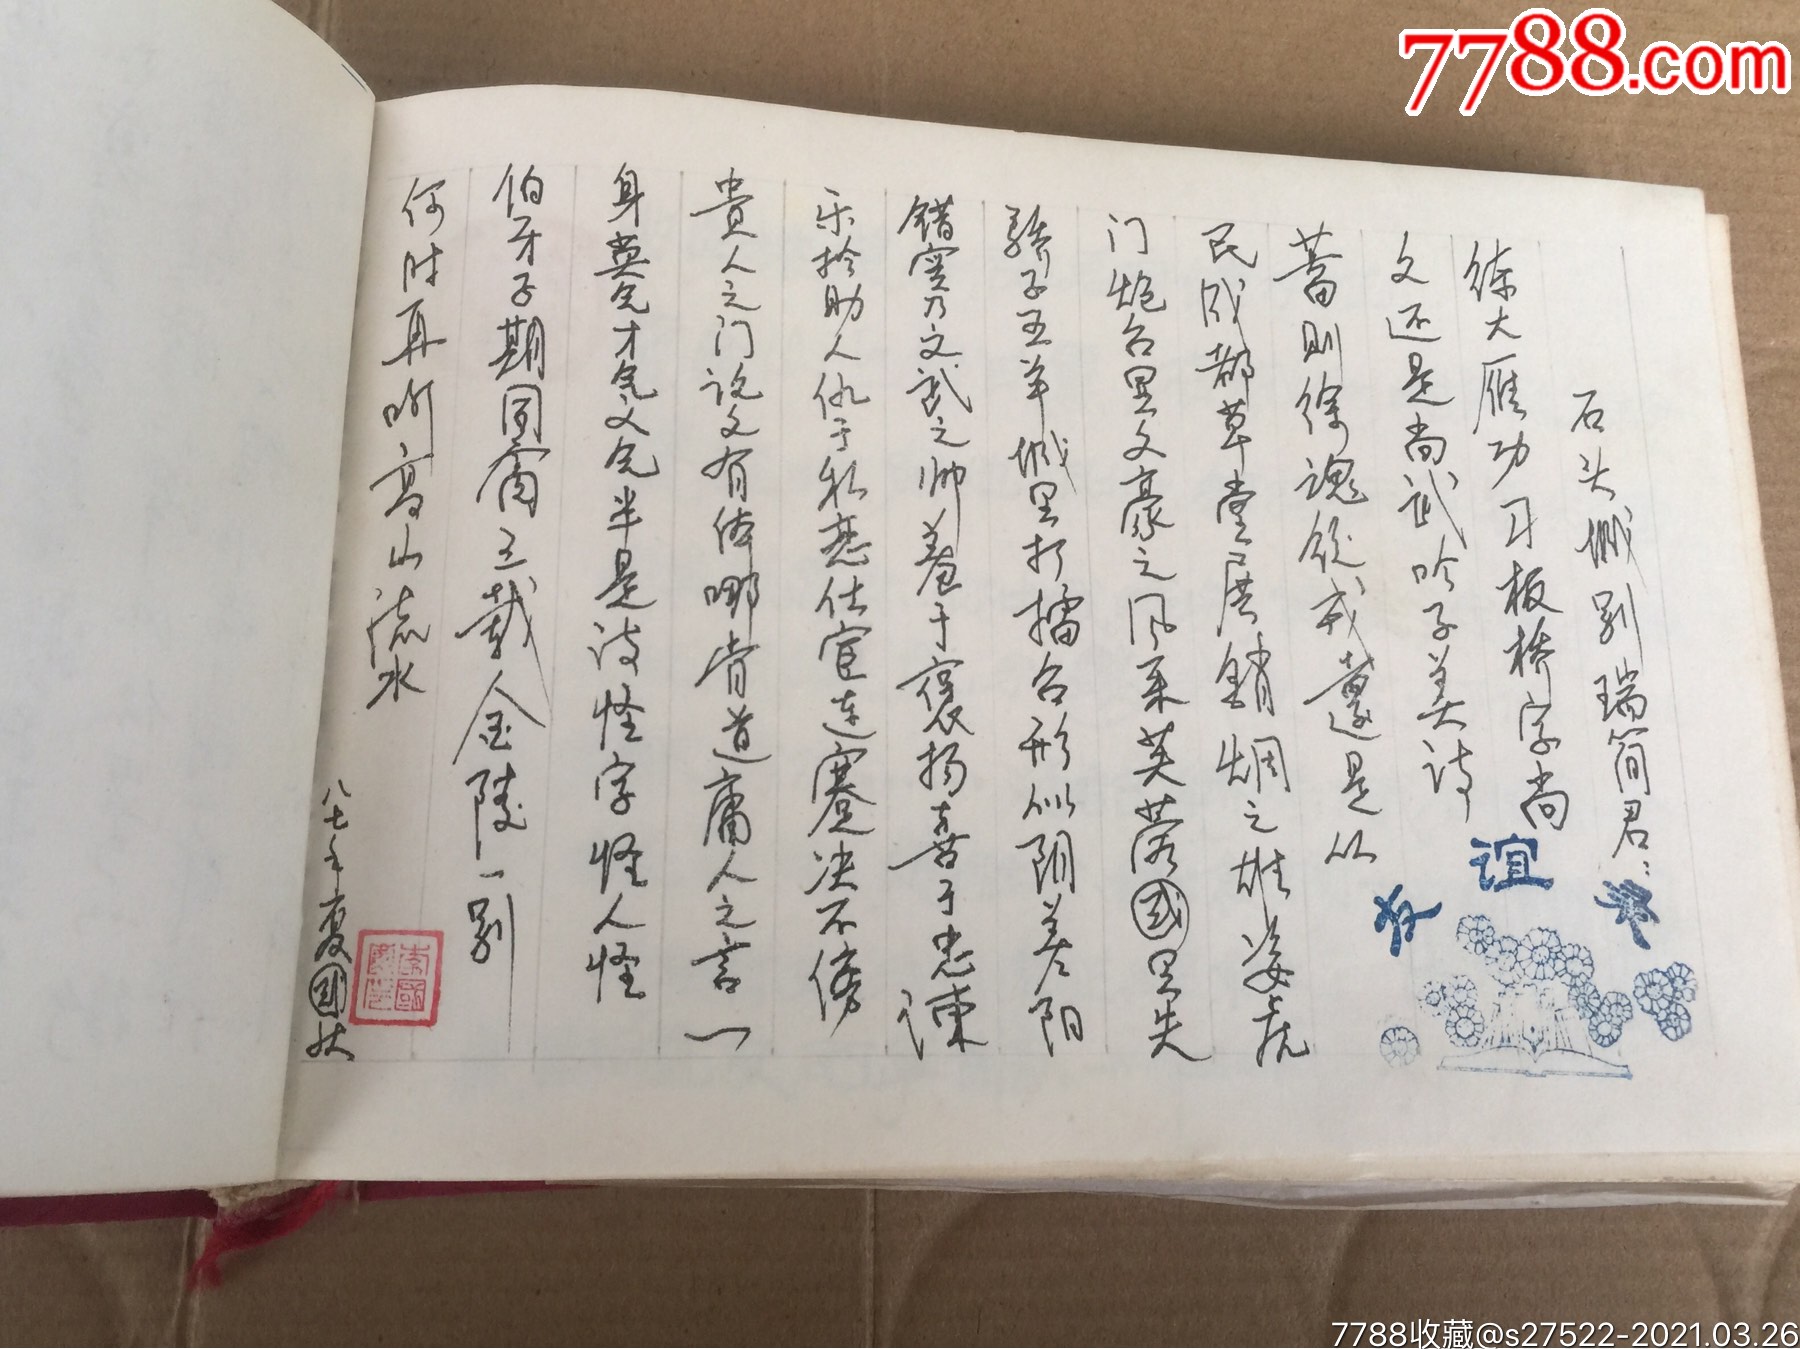 7788.com
石头城别瑞简君:
练大雁功习板桥字尚
文还是尚武吟子美诗
蓄则徐魂从戎是以
民成都草堂展销烟之雄姿虎
门炮台里文豪之风采芙蓉國里失
骄子五羊城里打擂台形似阴差阳
错实乃文武之帅羞于褒扬喜于忠谏
乐于助人仇于私恋仕宦连蹇决不傍
贵人之门说文有体哪肯道庸人之言一
身英气才气文气半是诗怪字怪人怪
伯牙子期同窗三载金陵一别
何时再听高山流水
八七年夏國
友谊
7788收藏@s27522-2021.03.26